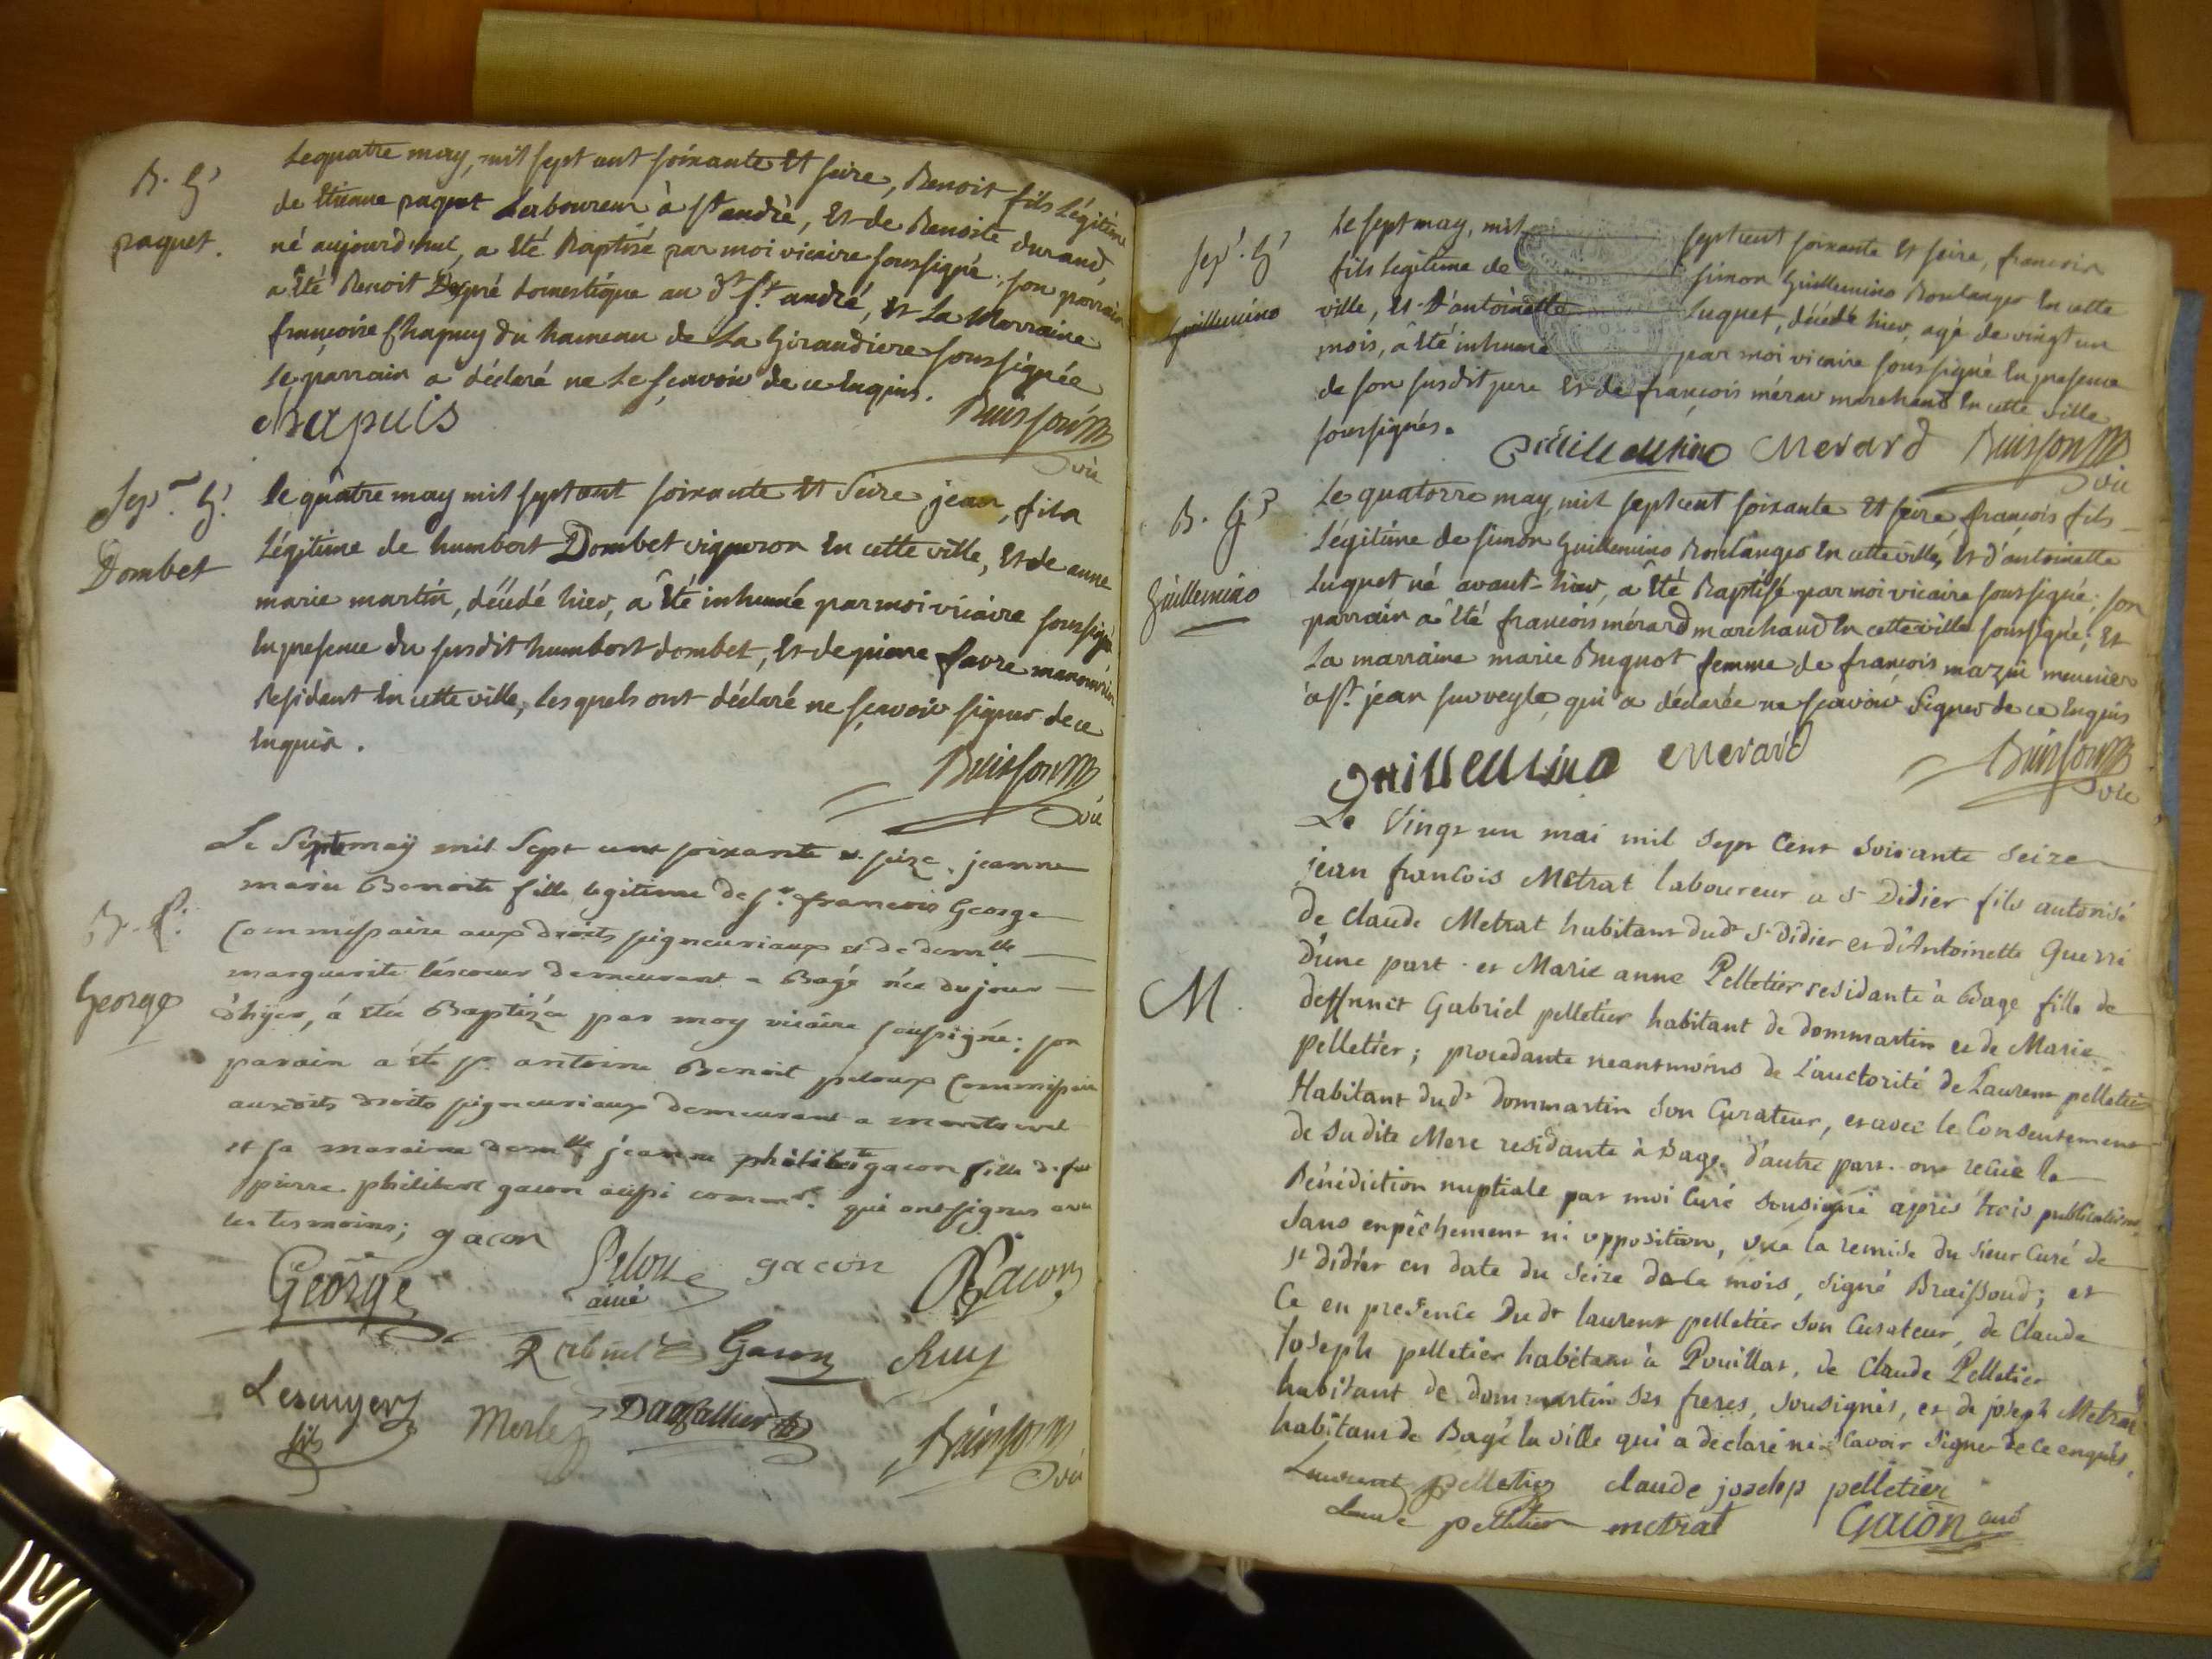 B. G.
paquet.
Le quatre may, mil sept cent soixante Et seize, Benoit fils Légitime
de Etienne paquet Laboureur à St andré, Et de Benoite durand,
né aujourd'hui, a Eté Baptisé par moi vicaire soussigné; son parrain
a Eté Benoit Dupré domestique au dt St. andré, Et La Marraine
françoise Chapuy du hameau de La Girandiere soussignée
Le parrain a déclaré ne Le sçavoir de ce Enquis.
chapuis Buisson
vic
Sep.re G.
Dombet
Le quatre may mil sept cent soixante Et Seize jean, fils
Légitime de humbert Dombet vigneron En cette ville, Et de anne
marie martin, décédé hier, a Eté inhumé par moi vicaire soussigné
En presence du susdit humbert dombet, Et de pierre favre manouvrier
Resident En cette ville, lesquels ont déclaré ne sçavoir signer de ce
Enquis.
Buisson
vic
B. f.
George
Le Sept may mil Sept cent soixante et seize, jeanne
marie Benoite fille legitime de sr. francois George
Commissaire aux droits seigneuriaux et de demlle
marguerite lescoeur demeurant a Bagé née du jour
d'hyer, á eté Baptizée par moy vicaire soussigné; son
parain a été sr. antoine Benoit peloux Commissaire
auxdits droits seigneuriaux demeurant a montrevel
et sa maraine demlle jeanne philiberte gacon fille de feu
pierre philibert gacon aussi commre. qui ont signés avec
les tesmoins; gacon
George Pelou gacon Gacon
ainé
Gacon
Lescuyer Merle Dagallier Buisson
fils vic
Sepre. G.
Guillemino
Le sept may, mil septcent soixante Et seize, francois
fils legitime de simon Guillemino Boulanger En cette
ville, Et d'antoinette Luquet, décédé hier, agé de vingt un
mois, a Eté inhumé par moi vicaire soussigné En presence
de son susdit pere Et de françois mérar marchand En cette ville
soussignés.
Guillemino Merard Buisson
vic
B. G.
Guillemino
Le quatorze may, mil septcent soixante Et seize françois fils
Légitime de simon Guillemino Boulanger En cette ville, Et d'antoinette
Luquet né avant-hier, a Eté Baptisé par moi vicaire soussigné; son
parrain a Eté francois mérard marchand En cette ville soussigné; Et
La marraine marie Buguot femme de francois mazui meunier
à St. jean sur veyle, qui a déclarée ne sçavoir Signer de ce Enquis
guillemino Merard Buisson
vic
M.
Le Vingt un mai mil Sept Cent Soixante Seize
jean francois Metrat laboureur a St Didier fils autorisé
de claude Metrat habitant dudt St Didier et d'Antoinette Guerri
d'une part. et Marie anne Pelletier residante à Bage fille de
deffunct Gabriel pelletier habitant de dommartin et de Marie
pelletier; procedante neantmoins de L'auctorité de Laurent pelletier
Habitant dudt dommartin Son Curateur, et avec le Consentement
de Sa dite Mere residante à Bage d'autre part. ont reçue la
Bénédiction nuptiale par moi Curé Sousigné après trois publications
Sans enpêchement ni opposition, vue la remise du Sieur Curé de
St didier en date du Seize de ce mois, Signé Braissoud; et
Ce en presence Dudt laurent pelletier Son Curateur, de Claude
Joseph pelletier habitant à Pouillat, de Claude Pelletier
habitant de dommartin Ses freres, Sousignés, et de joseph Metrat
habitant de Bagé la ville qui a déclaré ne Scavoir Signer de ce enquis.
Laurent pelletier claude josehp pelletier
claude pelletier metrat Gacon curé